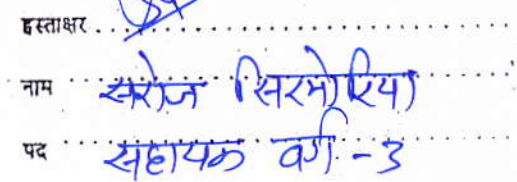 हस्ताक्षर ........................
नाम सरोज सिरमोरिया
पद सहायक वर्ग - 3